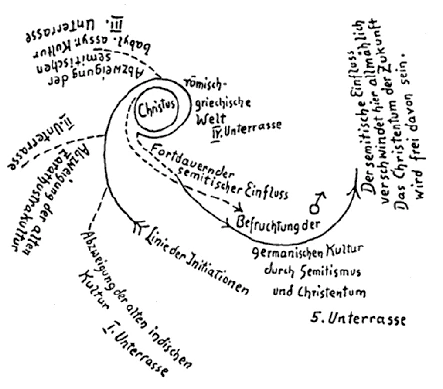 III. Unterrasse
babyl. assyr. Kultur
semitischen
Abzweigung der
römisch-
griechische
Welt
IV. Unterrasse
Christus
II. Unterrasse
Abzweigung der alten
Zarathustrakultur
Fortdauernder
semitischer Einfluss
Der semitische Einfluss
verschwindet hier allmählich
Das Christentum der Zukunft
wird frei davon sein.
♂
Befruchtung der
germanischen Kultur
durch Semitismus
und Christentum
5. Unterrasse
Linie der Initiationen
Abzweigung der alten indischen
Kultur
I. Unterrasse